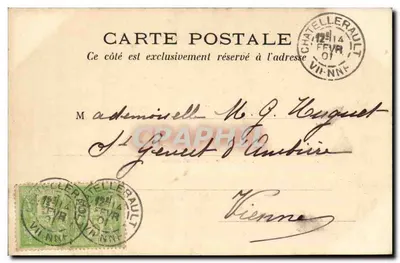 CARTE POSTALE
Ce côté est exclusivement réservé à l'adresse
CHATELLERAULT
12E 14
FEVR
01
VIENNE
Mademoiselle M. G. Huguet
St Genest d'Ambière
Vienne
CHATELLERAULT
FEVR
01
VIENNE
CHATELLERAULT
12E 14
FEVR
01
VIENNE